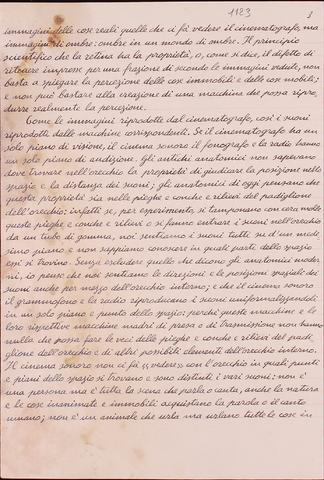 1123
3
immagini delle cose reali quelle che ci fà vedere il cinematografo, ma
immagini di ombre: ombre in un mondo di ombre. Il principio
scientifico che la retina ha la proprietà, o, come si dice, il difetto di
ritenere impresse per una frazione di secondo le immagini vedute, non
basta a spiegare la percezione delle cose immobili e delle cose mobili;
e non può bastare alla creazione di una macchina che possa ripro,
durre realmente la percezione.
Come le immagini riprodotte dal cinematografo, così i suoni
riprodotti dalle macchine corrispondenti. Se il cinematografo ha un
solo piano di visione, il cinema sonoro il fonografo e la radio hanno
un solo piano di audizione. Gli antichi anatomici non sapevano
dove trovare nell'orecchio la proprietà di giudicare la posizione nello
spazio e la distanza dei suoni; gli anatomici di oggi pensano che
questa proprietà sia nelle pieghe e conche e rilievi del padiglione
dell'orecchio: infatti se, per esperimento, si tamponano con cera molle
queste pieghe e conche e rilievi o si fanno entrare i suoni nell'orecchio
da un tubo di gomma, noi sentiamo i suoni tutti su d'un mede,
simo piano e non sappiamo conoscere in quale parte dello spazio
essi si trovino. Senza escludere quello che dicono gli anatomici moder
ni, io penso che noi sentiamo le direzioni e le posizioni spaziali dei
suoni anche per mezzo dell'orecchio interno; e che il cinema sonoro
il grammofono e la radio riproducano i suoni uniformalizzandoli
in un solo piano e punto dello spazio; perchè queste macchine e le
loro rispettive macchine madri di presa o di trasmissione non hanno
nulla che possa fare le veci delle pieghe e conche e rilievi del padi,
glione dell'orecchio e di altri possibili elementi dell'orecchio interno.
Il cinema sonoro non ci fà «vedere» con l'orecchio in quali punti
e piani dello spazio si trovano e sono distinti i vari suoni: non è
una persona ma è tutta la scena che parla o canta, anche la natura
e le cose inanimate e immobili acquistano la parola o il canto
umano; non è un animale che urta ma urlano tutte le cose in